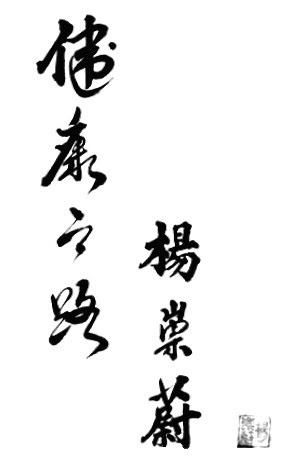 健康之路
楊崇蔚